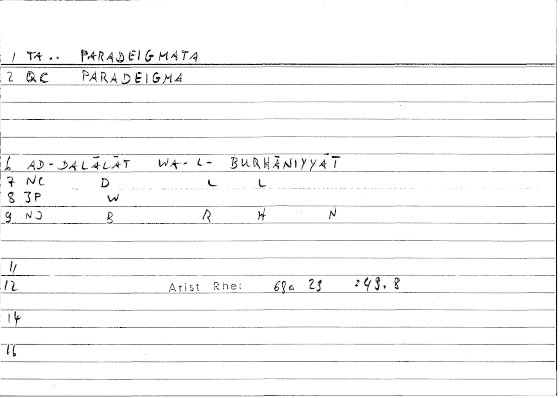 1 TA.. PARADEIGMATA
2 QC PARADEIGMA
6 AD-DALĀLĀT WA-L- BURHĀNIYYĀT
7 NC D L L
8 3P W
9 NJ B R H N
11
12 Arist Rhet 68a 29 :49.8
14
16